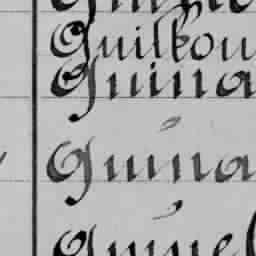 Guilkou
Guina
Guina
Guinel